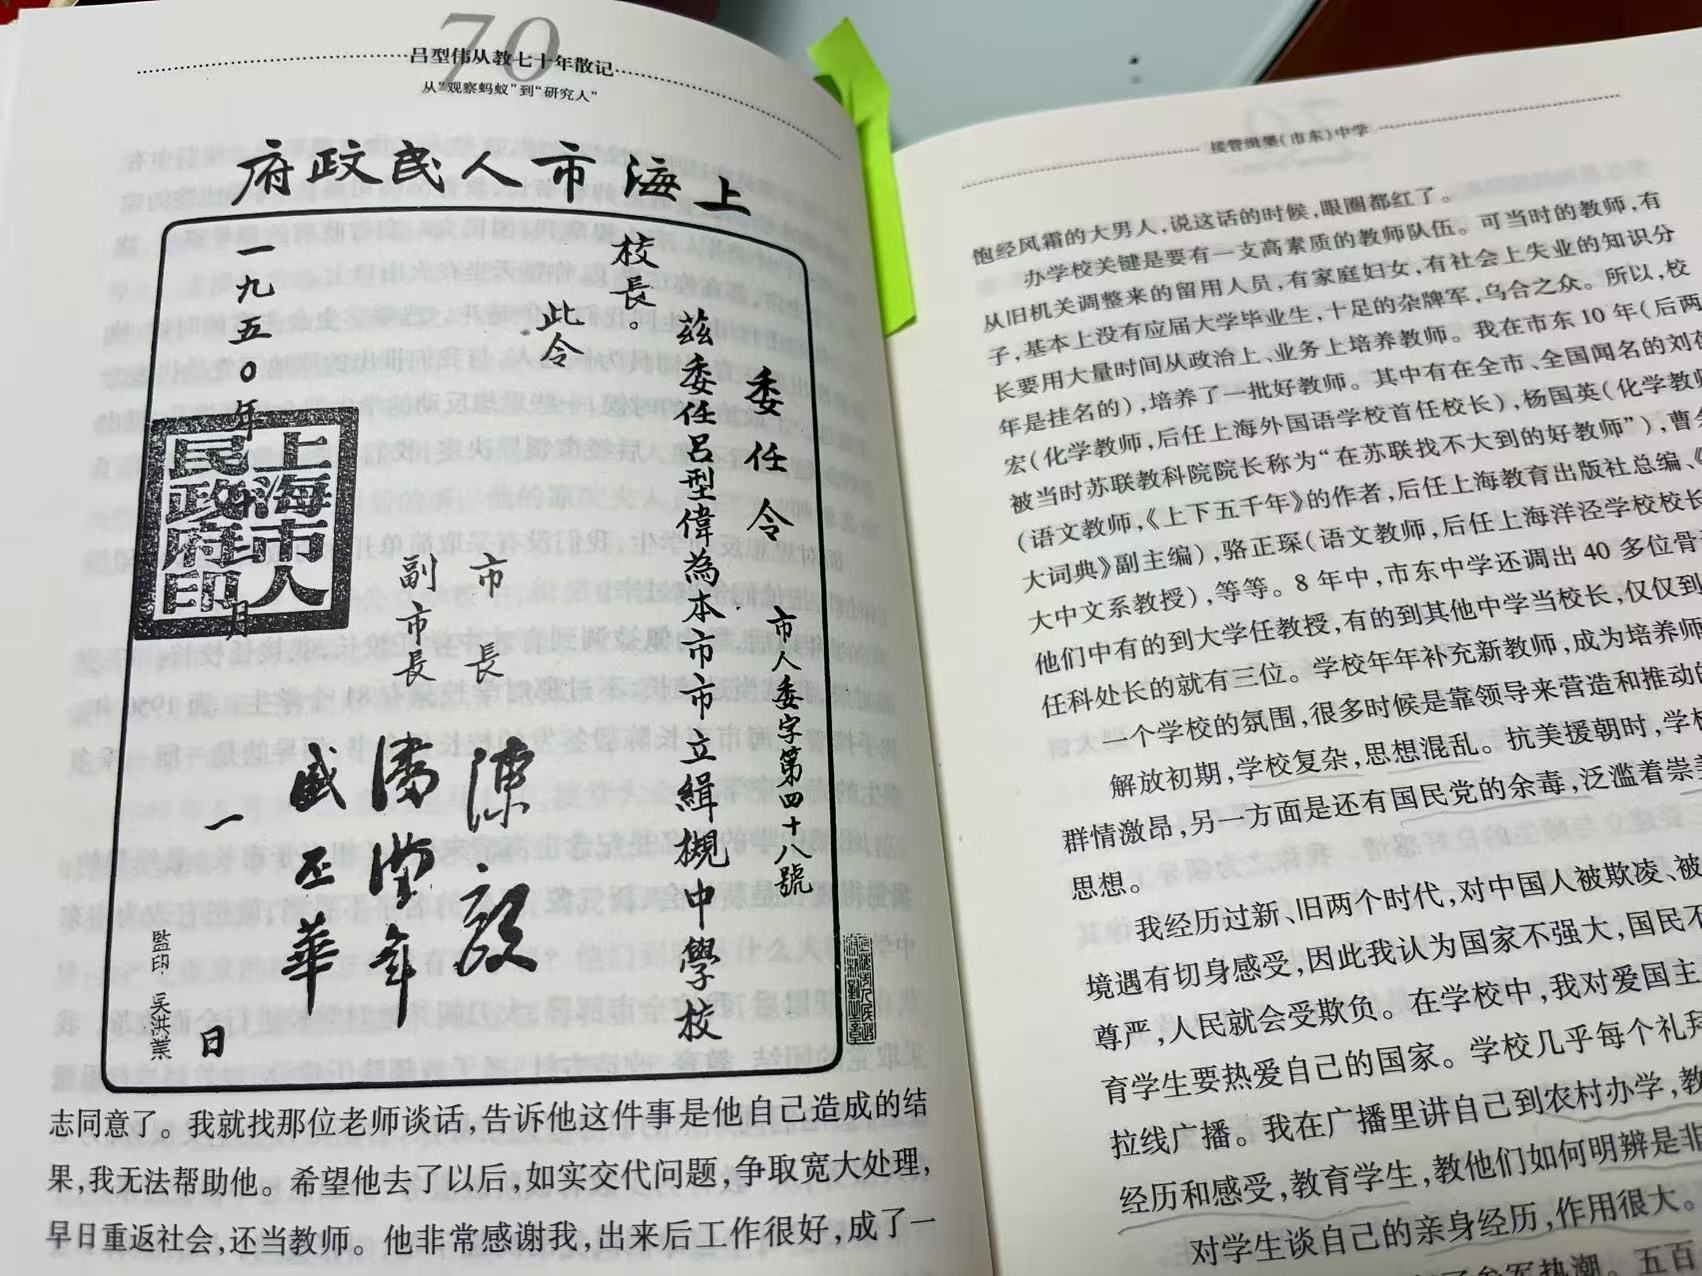 70
吕型伟从教七十年散记
从“观察蚂蚁”到“研究人”
上海市人民政府
委任令
市人委字第四十八號
茲委任吕型偉為本市市立緝槼中學校
校長。
此令
市長 陳毅
副市長 潘漢年
盛丕華
一九五〇年 月 一 日
上海市人民政府印
監印 吴洪業
志同意了。我就找那位老师谈话，告诉他这件事是他自己造成的结
果，我无法帮助他。希望他去了以后，如实交代问题，争取宽大处理，
早日重返社会，还当教师。他非常感谢我，出来后工作很好，成了一
接管缉槼（市东）中学
饱经风霜的大男人，说这话的时候，眼圈都红了。
办学校关键是要有一支高素质的教师队伍。可当时的教师，有
从旧机关调整来的留用人员，有家庭妇女，有社会上失业的知识分
子，基本上没有应届大学毕业生，十足的杂牌军，乌合之众。所以，校
长要用大量时间从政治上、业务上培养教师。我在市东10年（后两
年是挂名的），培养了一批好教师。其中有在全市、全国闻名的刘
（化学教师，后任上海外国语学校首任校长），杨国英（化学教师
宏（化学教师，后任上海外国语学校首任校长），杨国英（化学教师
被当时苏联教科院院长称为“在苏联找不大到的好教师”），曹
（语文教师，《上下五千年》的作者，后任上海教育出版社总编、《
大词典》副主编），骆正琛（语文教师，后任上海洋泾学校校长
大中文系教授），等等。8年中，市东中学还调出40多位骨
他们中有的到大学任教授，有的到其他中学当校长，仅仅到
任科处长的就有三位。学校年年补充新教师，成为培养师
一个学校的氛围，很多时候是靠领导来营造和推动的
解放初期，学校复杂，思想混乱。抗美援朝时，学校
群情激昂，另一方面是还有国民党的余毒，泛滥着崇美
思想。
我经历过新、旧两个时代，对中国人被欺凌、被
境遇有切身感受，因此我认为国家不强大，国民不
尊严，人民就会受欺负。在学校中，我对爱国主
育学生要热爱自己的国家。学校几乎每个礼拜
拉线广播。我在广播里讲自己到农村办学，教
经历和感受，教育学生，教他们如何明辨是非
对学生谈自己的亲身经历，作用很大。
参军热潮。五百